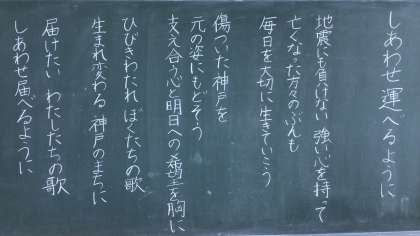 しあわせ運べるように
地震にも負けない 強い心を持って
亡くなった方々のぶんも
毎日を大切に生きていこう
傷ついた神戸を
元の姿にもどそう
支え合う心と明日への希望を胸に
ひびきわたれ ぼくたちの歌
生まれ変わる 神戸のまちに
届けたい わたしたちの歌
しあわせ届べるように